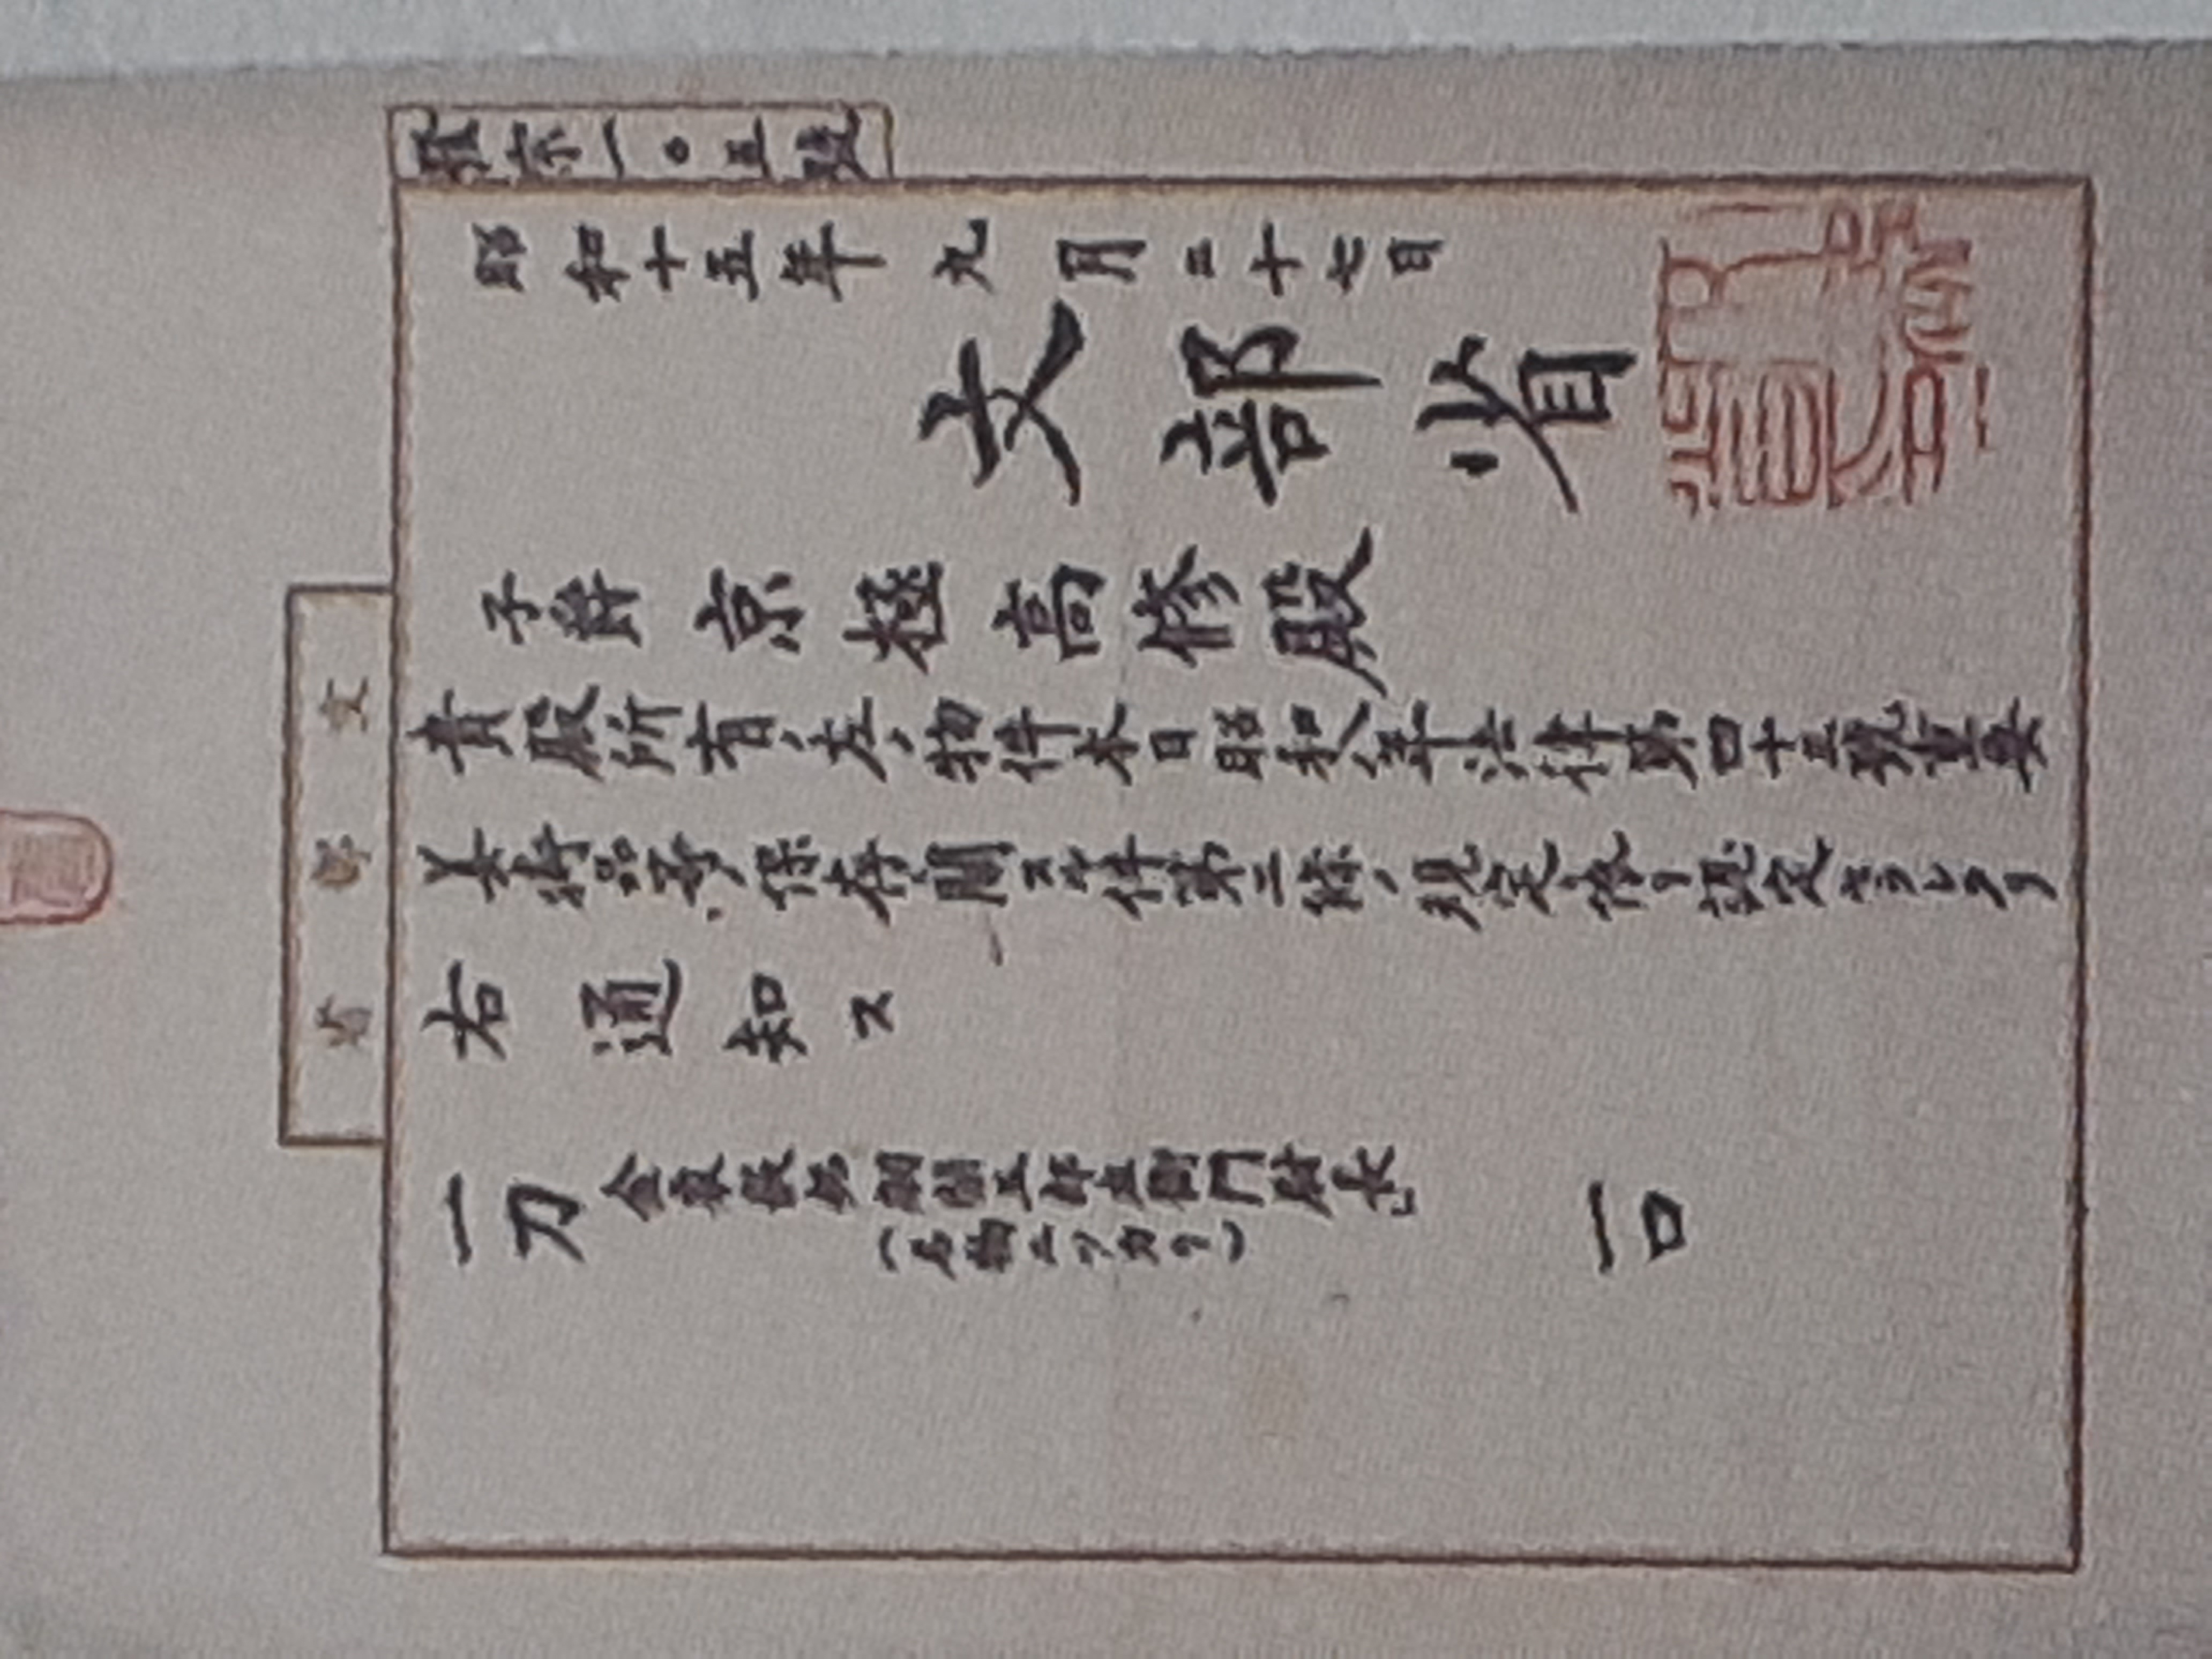 發宗一〇五號
昭和十五年九月二十七日
文部省
子爵京極高修殿
貴殿所有ノ左ノ物件本日昭和八年法律第四十三號重要
美術品等ノ保存ニ關スル件第二條ノ規定ニ依リ認定セラレタリ
右通知ス
一刀 金象嵌銘羽柴五郎左衛門尉長 一口
(名物ニッカリ)
文部省